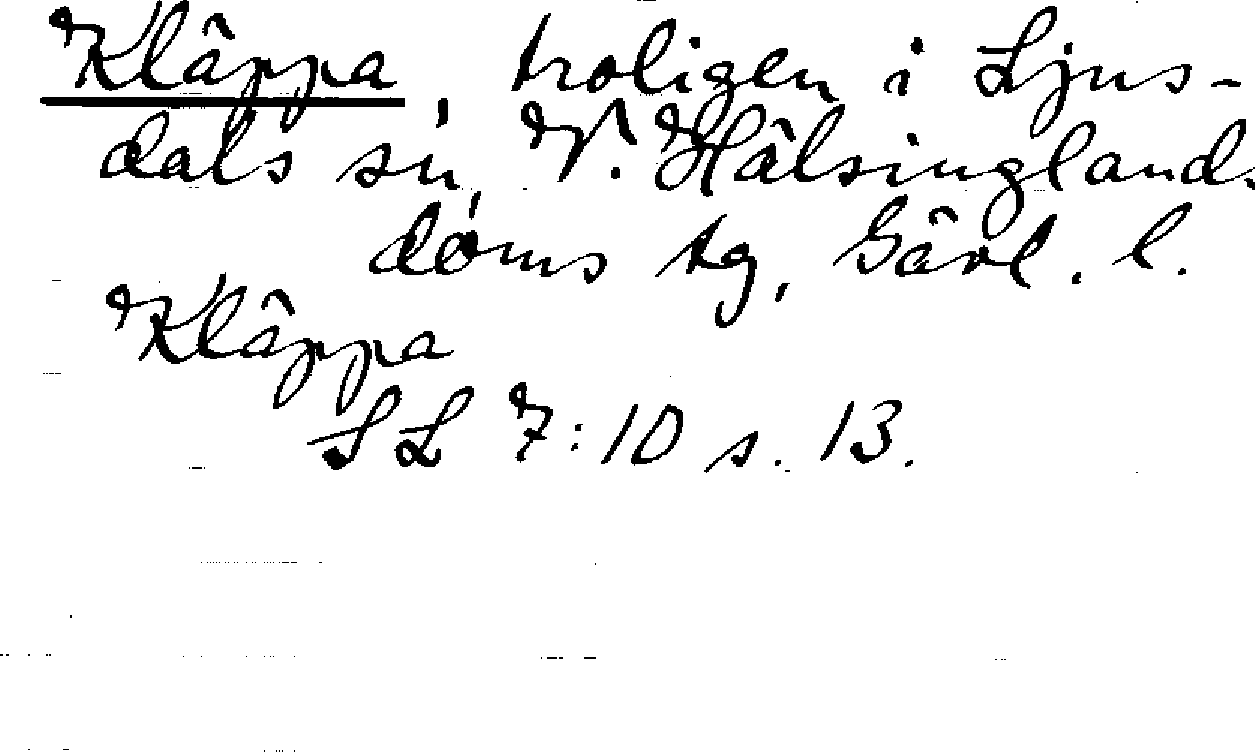 Kläppa, troligen i Ljus-
dals sn, V. Hälsinglands
doms tg, Gävl. l.
Kläppa
SL 7:10 s. 13.